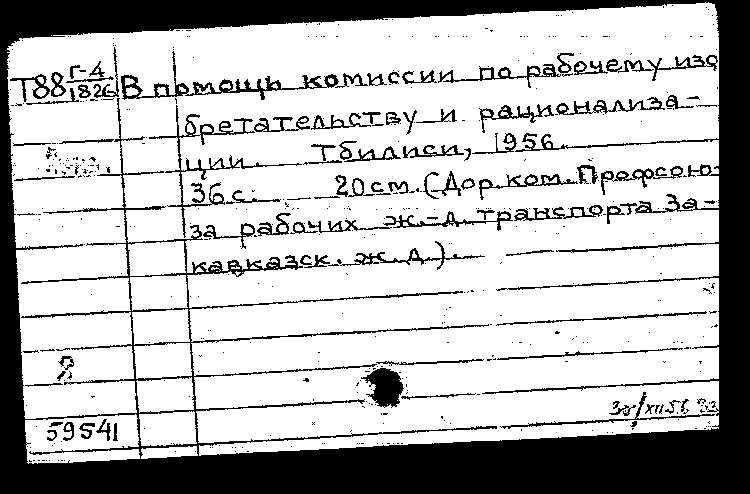 Т88 Г-4 1826 В помощь комиссии по рабочему изо
бретательству и рационализа-
ции. Тбилиси, 1956.
36с. 20см. (Дор.ком.Профсою-
за рабочих ж.-д. транспорта За-
кавказск. ж.д.).
59541